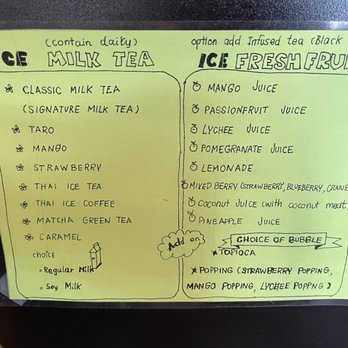 (contain daity)
CE MILK TEA
CLASSIC MILK TEA
(SIGNATURE MILK TEA)
TARO
MANGO
STRAWBERRY
THAI ICE TEA
THAI ICE COFFEE
MATCHA GREEN TEA
CARAMEL
choice
• Regular Milk
• Soy Milk
option add Infused tea (Black
ICE FRESH FRUI
MANGO JUICE
PASSIONFRUIT JUICE
LYCHEE JUICE
POMEGRANATE JUICE
LEMONADE
MIXED BERRY (STRAWBERRY, BLUEBERRY, CRANE
COCONUT JUICE (with coconut meat)
PINEAPPLE JUICE
Add on
CHOICE OF BUBBLE
TAPIOCA
POPPING (STRAWBERRY POPPING,
MANGO POPPING, LYCHEE POPPING)